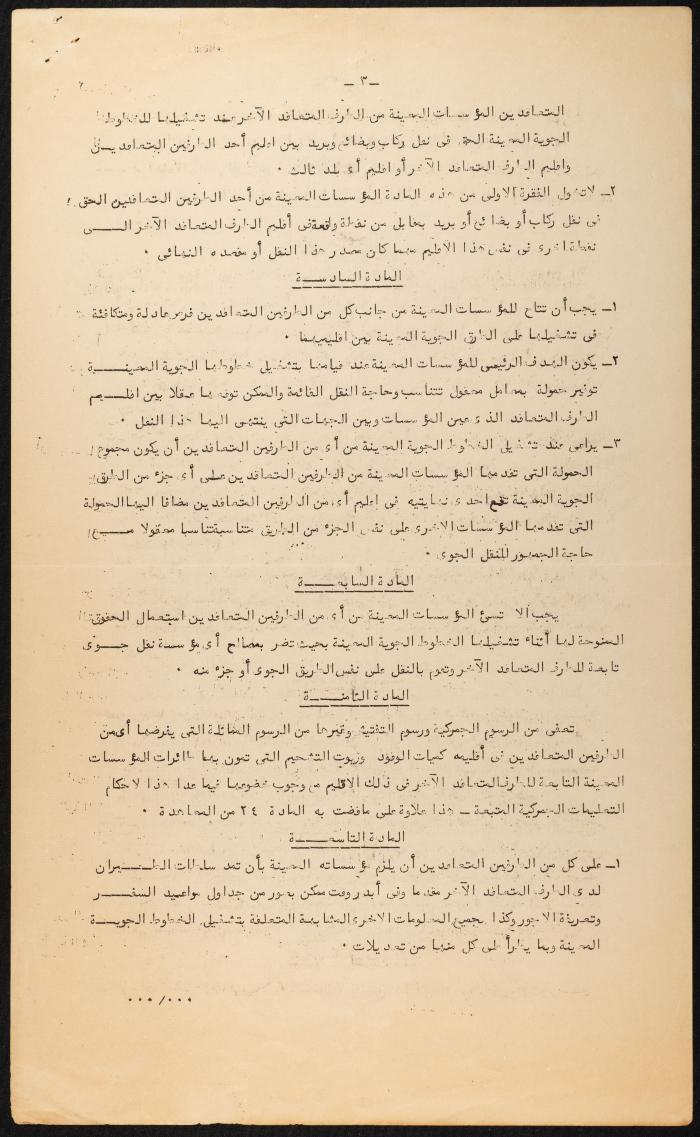 ـ ٣ ـ
المتعاقدين المؤسسات المعينة من الطرف المتعاقد الآخر عند تشغيلها للخطوط
الجوية المعينة الحق فى نقل ركاب وبضائع وبريد بين اقليم أحد الطرفين المتعاقديـن
واقليم الطرف المتعاقد الآخر أو اقليم أى بلد ثالث ٠
٢ـ لا تخول الفقرة الاولى من هذه المادة المؤسسات المعينة من أحد الطرفين المتعاقدين الحق
فى نقل ركاب أو بضائع أو بريد بمقابل من نقطة واقعة فى أقليم الطرف المتعاقد الآخر الـــى
نقطة اخرى فى نفس هذا الاقليم مهما كان مصدر هذا النقل أو مقصده النهائى ٠
المادة السادســة
١ـ يجب أن تتاح للمؤسسات المعينة من جانب كل من الطرفين المتعاقدين فرص عادلة ومتكافئة
فى تشغيلها على الطرق الجوية المعينة بين اقليميهما ٠
٢ـ يكون الهدف الرئيسى للمؤسسات المعينة عند قيامها بتشغيل خطوطها الجوية المعينــة
توفير حمولة بمعامل معقول تتناسب وحاجة النقل القائمة والممكن توقعها عقلا بين اقليــم
الطرف المتعاقد الذى عين المؤسسات وبين الجهات التى ينتهى اليها هذا النقل ٠
٣ـ يراعى عند تشغيل الخطوط الجوية المعينة من أى من الطرفين المتعاقدين أن يكون مجموع
الحمولة التى تقدمها المؤسسات المعينة من الطرفين المتعاقدين على أى جزء من الطرق
الجوية المعينة تقع احدى نهايتيه فى اقليم أى من الطرفين المتعاقدين مضافا اليها الحمولة
التى تقدمها المؤسسات الاخرى على نفس الجزء من الطريق متناسبة تناسبا معقولا مـــع
حاجة الجمهور للنقل الجوى ٠
المادة السابعــة
يجب ألا تسئ المؤسسات المعينة من أى من الطرفين المتعاقدين استعمال الحقوق
الممنوحة لها أثناء تشغيلها الخطوط الجوية المعينة بحيث تضر بمصالح أى مؤسسة نقل جــوى
تابعة للطرف المتعاقد الآخر وتقوم بالنقل على نفس الطريق الجوى أو جزء منه ٠
المادة الثامنــة
تعفى من الرسوم الجمركية ورسوم التفتيش وغيرها من الرسوم المماثلة التى يفرضها أى من
الطرفين المتعاقدين فى أقليمه كميات الوقود وزيوت التشحيم التى تمون بها طائرات المؤسسات
المعينة التابعة للطرف المتعاقد الآخر فى ذلك الاقليم مع وجوب خضوعها فيما عدا هذا لاحكام
التعليمات الجمركية المتبعة ـ هذا علاوة على ماقضت به المادة ٢٤ من المعاهدة ٠
المادة التاسعــة
١ـ على كل من الطرفين المتعاقدين أن يلزم مؤسساته المعينة بأن تمد سلطات الطــيران
لدى الطرف المتعاقد الآخر مقدما وفى أبدر وقت ممكن بصور من جداول مواعيد السفــر
وتعريفة الاجور وكذا بجميع المعلومات الاخرى المشابهة المتعلقة بتشغيل الخطوط الجويــة
المعينة وبما يطرأ على كل منها من تعديلات ٠
٠٠٠/٠٠٠